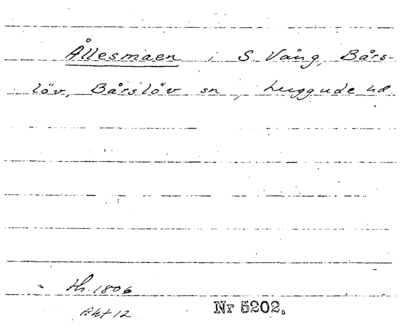 Ållesmaen i S Vång, Bårs-
löv, Bårslöv sn, Luggude hd
th. 1806
Akt 12
Nr 5202.